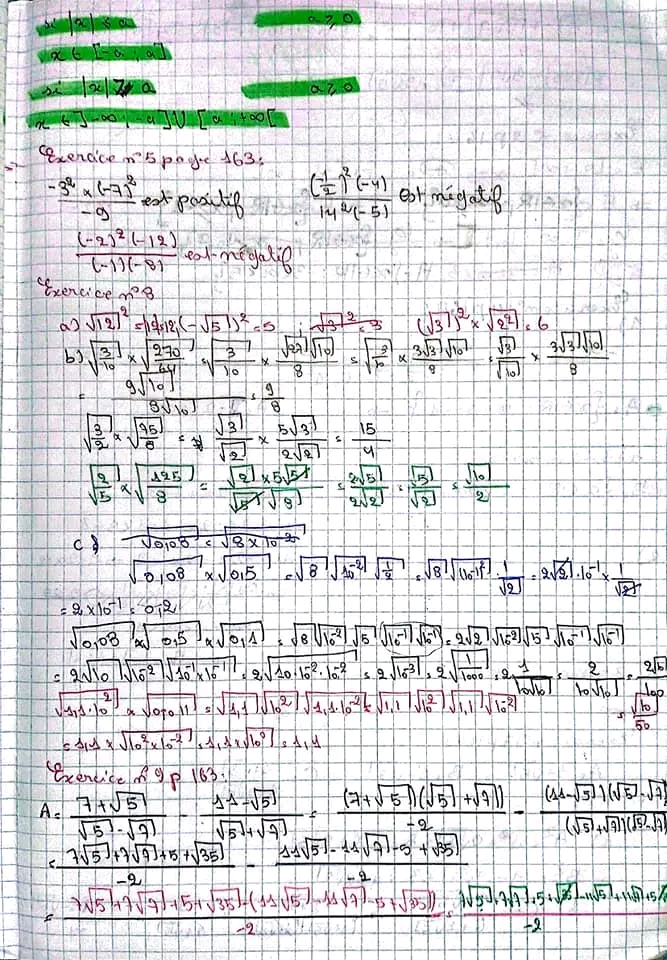 si |x| ≤ a a ≥ 0
x ∈ [-a ; a]
si |x| ≥ a a ≥ 0
x ∈ ]-∞ ; -a] U [a ; +∞[
Exercice n°5 page 163:
-3² × (-7)² / -9 est positif (-1/2)² (-4) / 14² (-5) est négatif
(-2)² (-12) / (-1)(-8) est négatif
Exercice n°8
a) √12² = 12 (-√5)² = 5 √3² = 3 (√3)² × √2² = 6
b) √(3/10) × √(270/64) = √(3/10) × √27 √10 / 8 = √(3/10) × 3√3 √10 / 8 = √3/√10 × 3√3 √10 / 8
= 9√10 / 8√10 = 9/8
√(3/2) × √(75/8) = √3/√2 × 5√3 / 2√2 = 15/4
√(2/5) × √(125/8) = √2 × 5√5 / √5 √8 = 2√5 / 2√2 = √5/√2 = √10/2
c) √0,08 = √8 × 10⁻²
√0,08 × √0,5 = √8 √10⁻² √(1/2) = √8 √(10⁻¹)² · 1/√2 = 2√2 · 10⁻¹ × 1/√2
= 2 × 10⁻¹ = 0,2
√0,08 × √0,5 × √0,1 = √8 √10⁻² √5 √10⁻¹ √10⁻¹ = 2√2 √10⁻² √5 √10⁻¹ √10⁻¹
= 2√10 √10⁻² √10⁻¹ × 10⁻¹ = 2√10 · 10⁻² · 10⁻² = 2√10⁻³ = 2√(1/1000) = 2 1/10√10 = 2/10√10 = 2√10/100
√1,1 · 10² × √0,011 = √1,1 √10² √1,1 · 10⁻² = √1,1 √10² √1,1 √10⁻² = √10/50
= 1,1 × √10² × 10⁻² = 1,1 × √10⁰ = 1,1
Exercice n°9 p 163:
A = 7+√5 / √5-√7 - 11-√5 / √5+√7 = (7+√5)(√5+√7) / -2 - (11-√5)(√5-√7) / (√5+√7)(√5-√7)
= 7√5+7√7+5+√35 / -2 - 11√5-11√7-5+√35 / -2
= 7√5+7√7+5+√35-(11√5-11√7-5+√35) / -2 = 7√5+7√7+5+√35-11√5+11√7+5 / -2